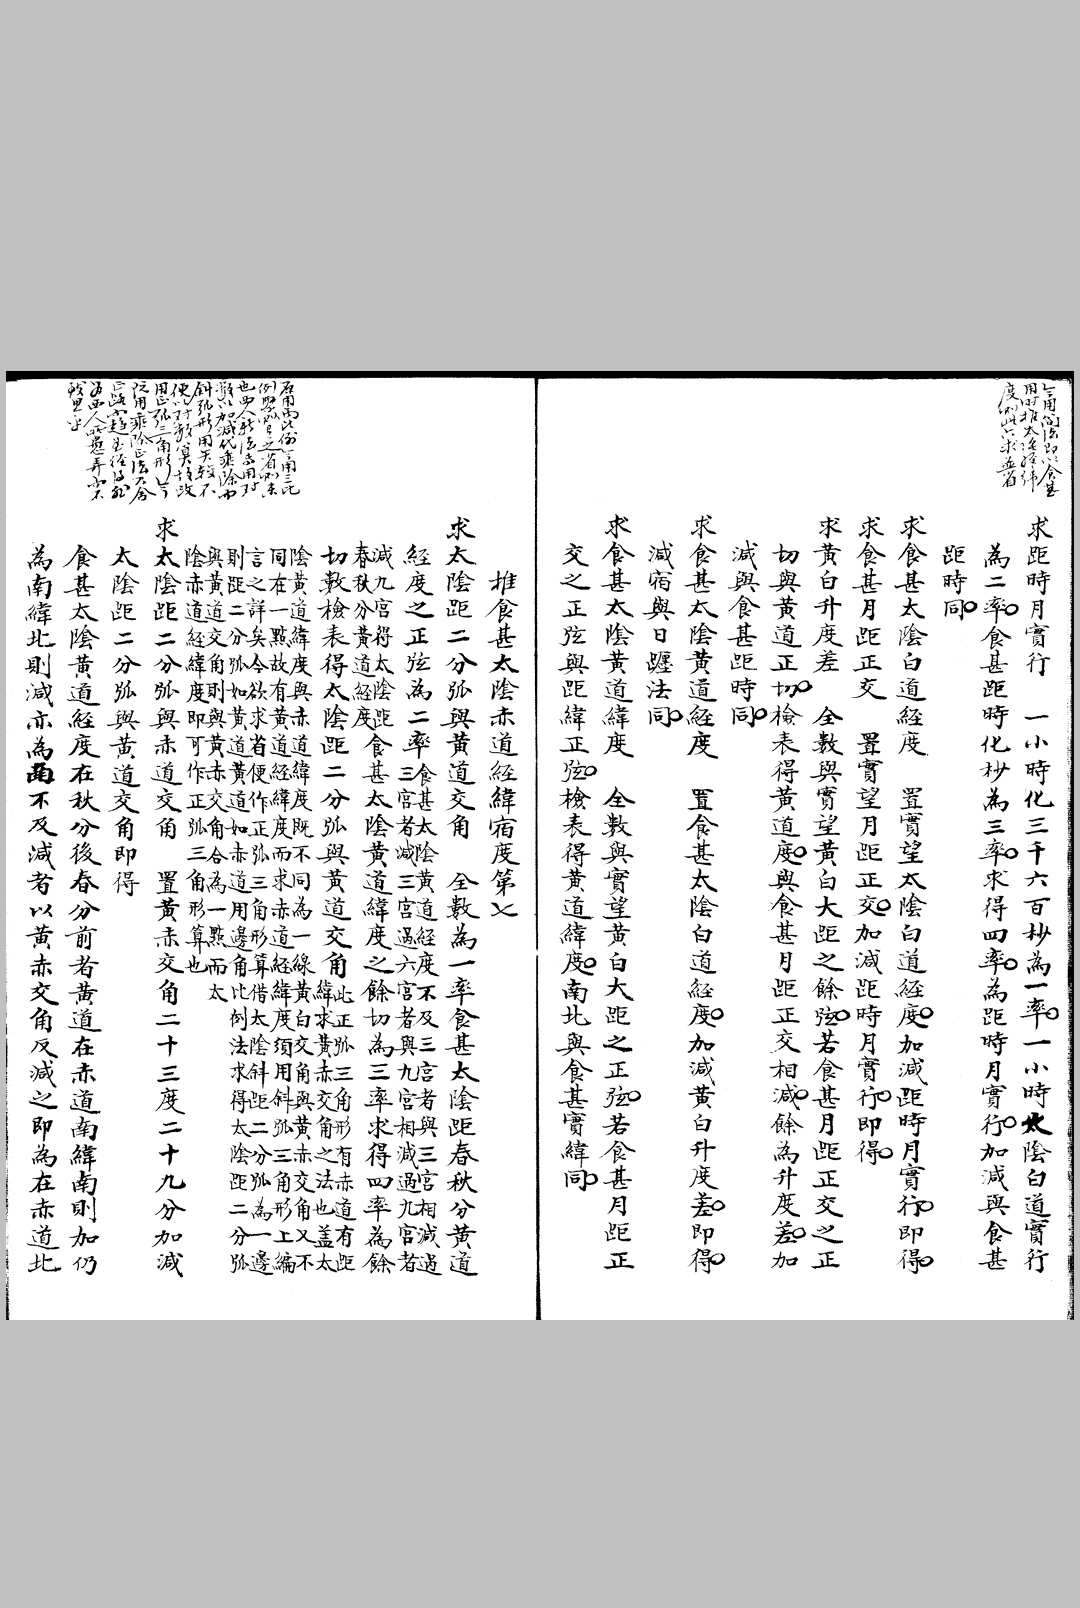 求距時月實行　一小時化三千六百秒為一率一小時太陰白道實行
為二率食甚距時化秒為三率求得四率為距時月實行加減與食甚
距時同
求食甚太陰白道經度　置實望太陰白道經度加減距時月實行即得
求食甚月距正交　置實望月距正交加減距時月實行即得
求黃白升度差　全數與實望黃白大距之餘弦若食甚月距正交之正
切與黃道正切檢表得黃道度與食甚月距正交相減餘為升度差加
減與食甚距時同
求食甚太陰黃道經度　置食甚太陰白道經度加減黃白升度差即得
減宿與日躔法同
求食甚太陰黃道緯度　全數與實望黃白大距之正弦若食甚月距正
交之正弦與距緯正弦檢表得黃道緯度南北與食甚實緯同
推食甚太陰赤道經緯宿度第七
求太陰距二分弧與黃道交角　全數為一率食甚太陰距春秋分黃道
經度之正弦為二率食甚太陰黃道經度不及三宮者與三宮相減過
三宮者減三宮過六宮者與九宮相減過九宮者
減九宮得太陰距
春秋分黃道經度食甚太陰黃道緯度之餘切為三率求得四率為餘
切數檢表得太陰距二分弧與黃道交角此正弧三角形有赤道有距
緯求黃赤交角之法也蓋太
陰黃道緯度與赤道緯度既不同為一線黃白交角與黃赤交角又不
同在一點故有黃道經緯度而求赤道經緯度須用斜弧三角形上編
言之詳矣今欲求省便作正弧三角形算借太陰斜距二分弧為一邊
則距二分弧如黃道黃道如赤道用邊角比例法求得太陰距二分弧
與黃道交角則與黃赤交角合為一點而太
陰赤道經緯度即可作正弧三角形算也
求太陰距二分弧與赤道交角　置黃赤交角二十三度二十九分加減
太陰距二分弧與黃道交角即得
食甚太陰黃道經度在秋分後春分前者黃道在赤道南緯南則加仍
為南緯北則減亦為南不及減者以黃赤交角反減之即為在赤道北